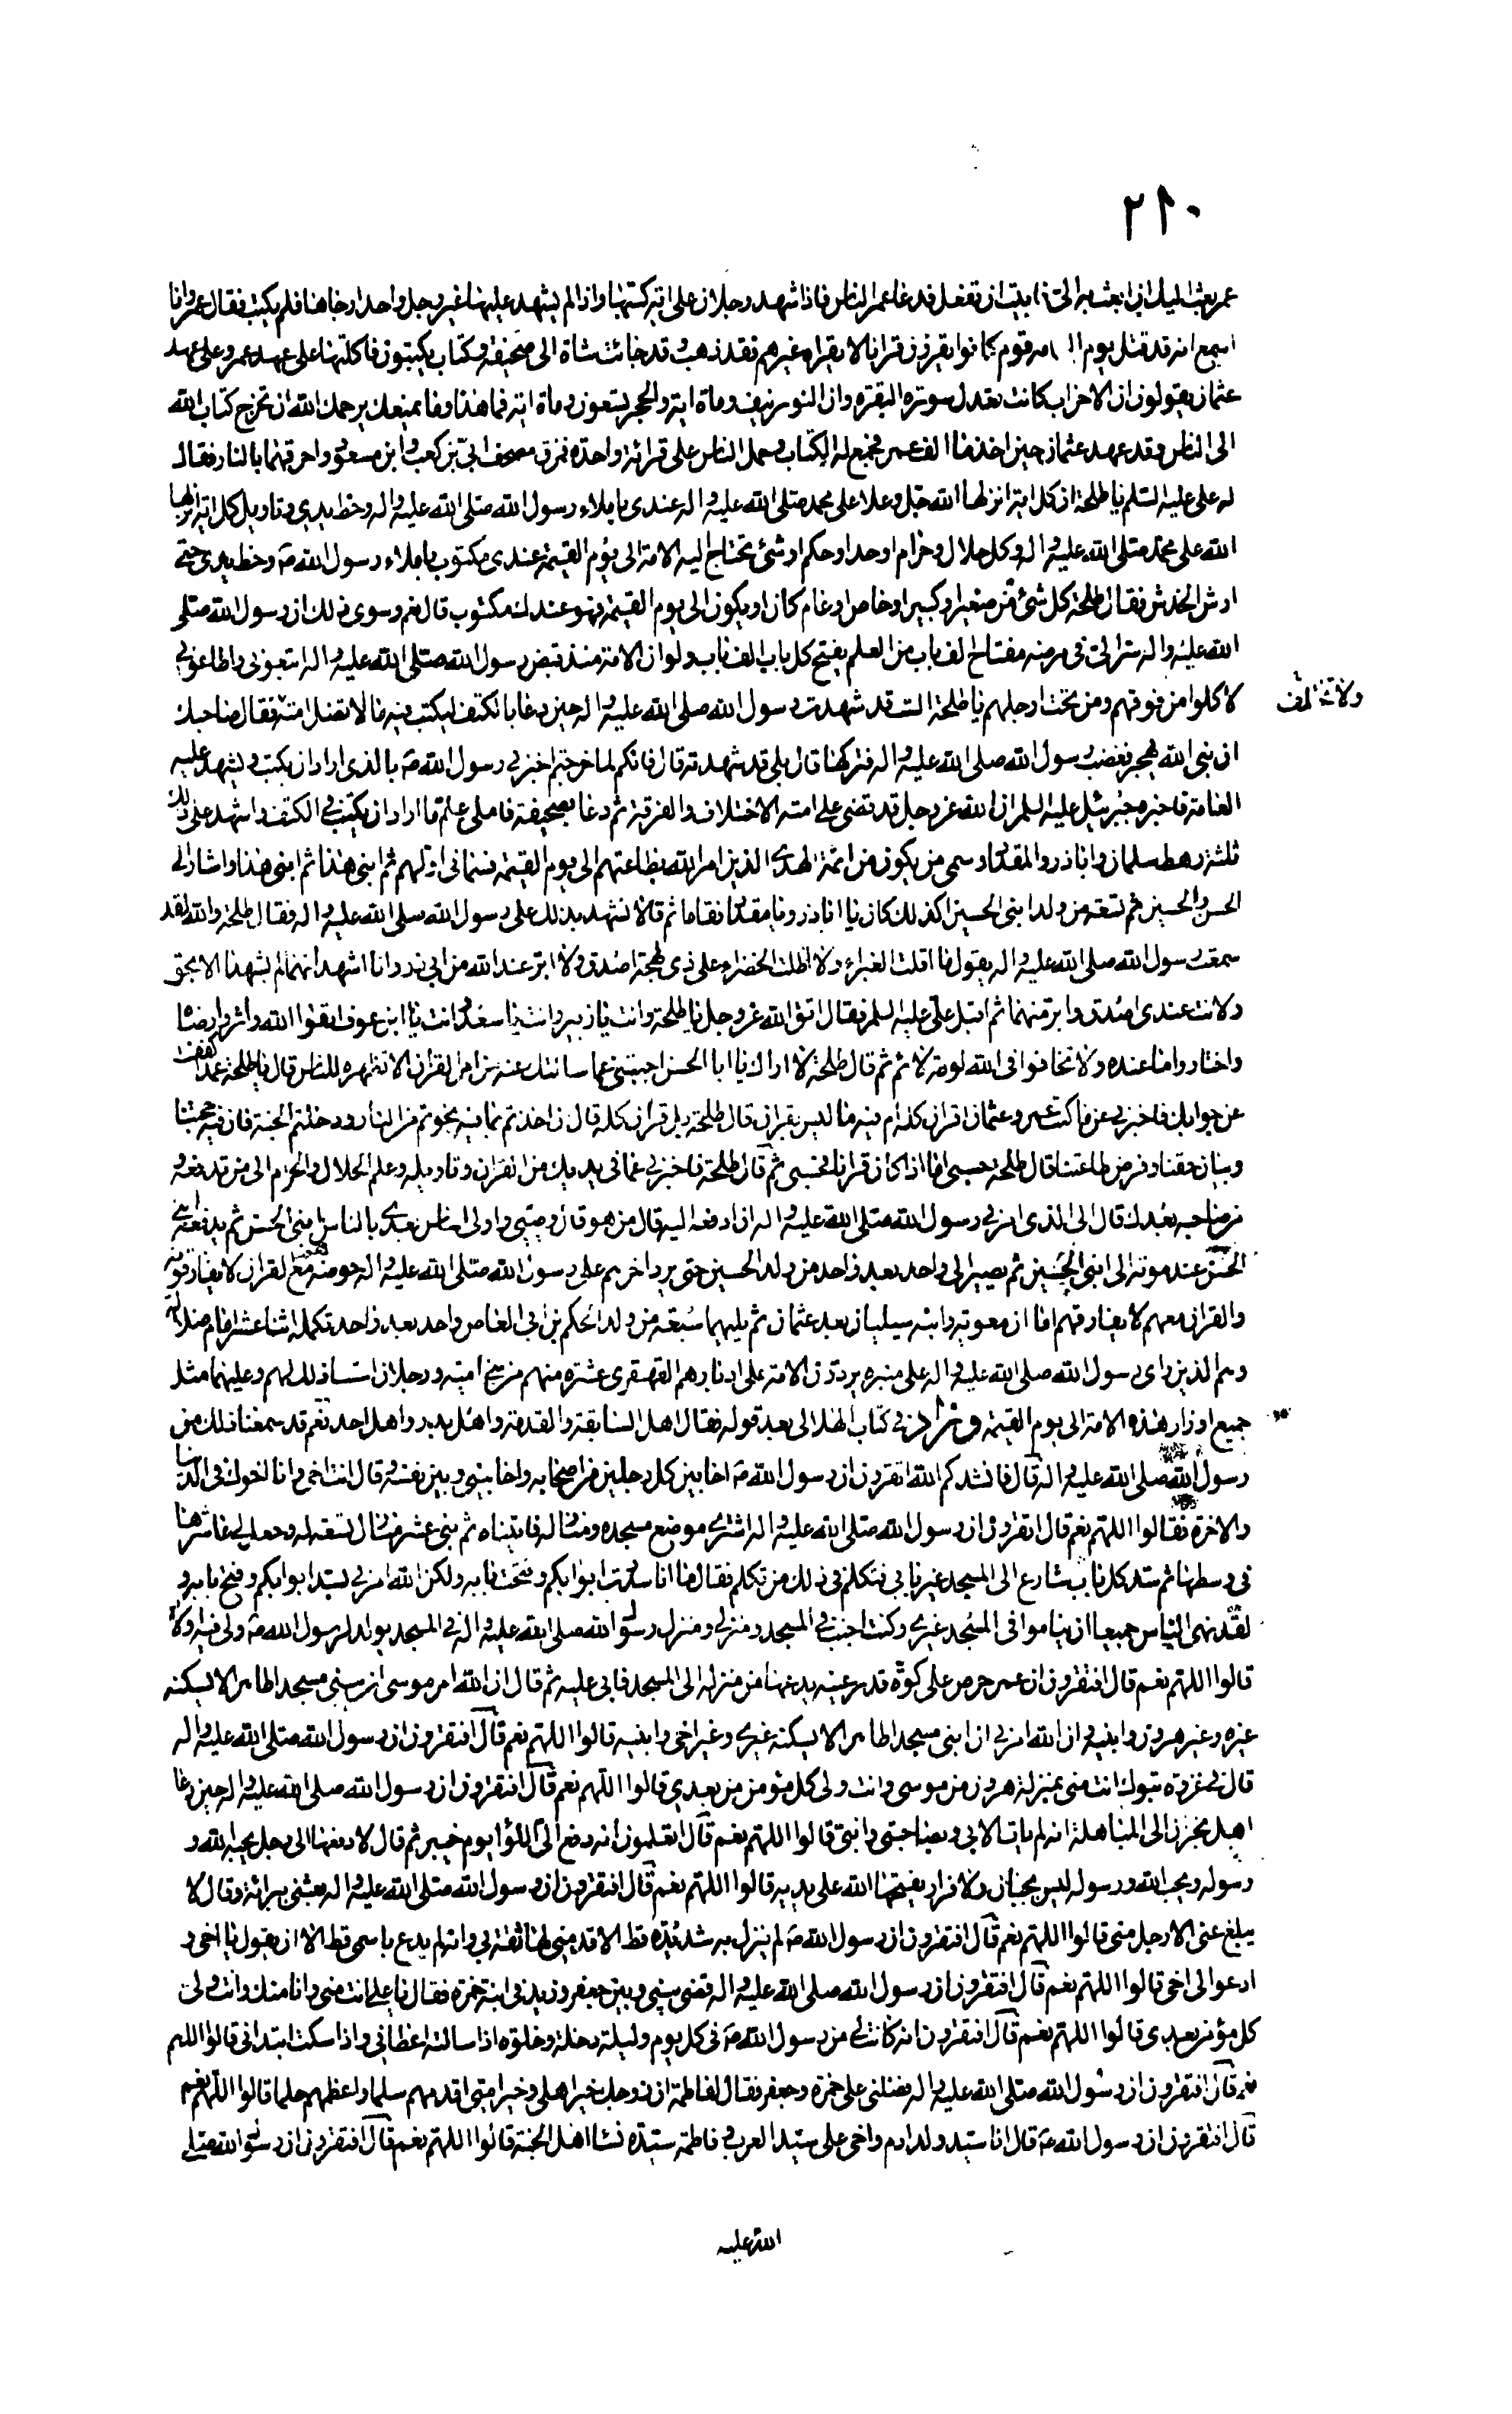 ٢١٠
عمر بعث اليك ان ابعث به الى فابيت ان تفعل فدعا عمر الناس فاذا شهد رجلان على اية كتبها واذا لم يشهد عليها غير رجل واحد ارجاها فلم يكتب فقال عمر وانا
اسمع انه قد قتل يوم اليمامه قوم كانوا يقرؤن قرانا لا يقراه غيرهم فقد ذهب وقد جائت شاة الى صحيفة وكتاب يكتبون فاكلتها على عهد عمر وعلى عهد
عثمان يقولون ان الاحزاب كانت تعدل سورة البقرة وان النور نيف ومأة اية والحجر تسعون ومأة اية فما هذا وما يمنعك يرحمك الله ان تخرج كتاب الله
الى الناس وقد عهد عثمان حين اخذ ما الف عمر فجمع له الكتاب وحمل الناس على قرائة واحدة فمزق مصحف ابي بن كعب وابن مسعود واحرقهما بالنار فقال
له علي عليه السلم يا طلحة ان كل اية انزلها الله جل وعلا على محمد صلى الله عليه واله عندي باملاء رسول الله صلى الله عليه واله وخط يدي وتاويل كل اية انزلها
الله على محمد صلى الله عليه واله وكل حلال وحرام او حد او حكم او شئ تحتاج اليه الامة الى يوم القيمة عندي مكتوب باملاء رسول الله صه وخط يدي حتى
ارش الخدش فقال طلحة كل شئ من صغير او كبير او خاص او عام كان او يكون الى يوم القيمة فهو عندك مكتوب قال نعم وسوى ذلك ان رسول الله صلى
الله عليه واله سر الى في مرضه مفتاح الف باب من العلم يفتح كل باب الف باب ولو ان الامة منذ قبض رسول الله صلى الله عليه واله اتبعوني واطاعوني
لاكلوا من فوقهم ومن تحت ارجلهم يا طلحة الست قد شهدت رسول الله صلى الله عليه واله حين دعا بالكتف ليكتب فيه ما لا تضل امته فقال صاحبك
ان نبي الله يهجر فغضب رسول الله صلى الله عليه واله فتركها قال بلى قد شهدته قال فانكم لما خرجتم اخبرني رسول الله صه بالذي اراد ان يكتب ويشهد عليه
العامة فاخبره جبرئيل عليه السلم ان الله عز وجل قد قضى على امته الاختلاف والفرقة ثم دعا بصحيفة فاملى علي ما اراد ان يكتب في الكتف واشهد على ذلك
ثلثة رهط سلمان وابا ذر والمقداد وسمى من يكون من ائمة الهدى الذين امر الله بطاعتهم الى يوم القيمة فسماني اولهم ثم ابني هذا ثم ابني هذا واشار الى
الحسن والحسين ثم تسعة من ولد ابني الحسين اكذلك كان يا ابا ذر ويا مقداد فقاما ثم قالا نشهد بذلك على رسول الله صلى الله عليه واله فقال طلحة والله لقد
سمعت رسول الله صلى الله عليه واله يقول ما اقلت الغبراء ولا اظلت الخضراء على ذي لهجة اصدق ولا ابر عند الله من ابي ذر وانا اشهد انهما لم يشهدا الا بحق
ولانت عندي اصدق وابر منهما ثم اقبل علي عليه السلم فقال اتق الله عز وجل يا طلحة وانت يا زبير وانت يا سعد وانت يا ابن عوف اتقوا الله واثروا رضاه
واختاروا ما عنده ولا تخافوا في الله لومة لائم ثم قال طلحة لا اراك يا ابا الحسن اجبتني عما سالتك عنه من امر القران الا تظهره للناس قال يا طلحة عمدا كففت
عن جوابك فاخبرني عن ما كتب عمر وعثمان اقران كله ام فيه ما ليس بقران قال طلحة بل قران كله قال ان اخذتم بما فيه نجوتم من النار ودخلتم الجنة فان فيه حجتنا
وبيان حقنا وفرض طاعتنا قال طلحة حسبي اما اذا كان قرانا فحسبي ثم قال طلحة فاخبرني عما في يديك من القران وتاويله وعلم الحلال والحرام الى من تدفعه و
من صاحبه بعدك قال الى الذي امرني رسول الله صلى الله عليه واله ان ادفعه اليه قال من هو قال وصيي واولى الناس بعدي بالناس ابني الحسن ثم يدفعه ابني
الحسن عند موته الى ابني الحسين ثم يصير الى واحد بعد واحد من ولد الحسين حتى يرد اخرهم على رسول الله صلى الله عليه واله حوضه هم مع القران لا يفارقونه
والقران معهم لا يفارقهم اما ان معوية وابنه سيليان بعد عثمان ثم يليهما سبعة من ولد الحكم بن ابي العاص واحد بعد واحد تكملة اثنا عشر امام ضلالة
وهم الذين راى رسول الله صلى الله عليه واله على منبره يردون الامة على ادبارهم القهقرى عشرة منهم من بني امية ورجلان اسسا ذلك لهم وعليهما مثل
جميع اوزار هذه الامة الى يوم القيمة وزاد في كتاب الهلالي بعد قوله فقال اهل السابقة والقدمة واهل بدر واهل احد نعم قد سمعنا ذلك من
رسول الله صلى الله عليه واله قال فانشدكم الله اتقرون ان رسول الله صه اخا بين كل رجلين من اصحابه واخا بيني وبين نفسه قال انت اخي وانا اخوك في الدنيا
والاخرة فقالوا اللهم نعم قال اتقرون ان رسول الله صلى الله عليه واله اشترى موضع مسجده ومنازله فابتناه ثم بنى عشر منازل تسعة له وجعل لي عاشرها
في وسطها ثم سد كل باب شارع الى المسجد غير بابي فتكلم في ذلك من تكلم فقال ما انا سددت ابوابكم وفتحت بابه ولكن الله امرني بسد ابوابكم وفتح بابه و
لقد نهى الناس جميعا ان يناموا في المسجد غيري وكنت اجنب في المسجد ومنزلي ومنزل رسول الله صلى الله عليه واله في المسجد يولد لرسول الله صه ولي فيه اولاد
قالوا اللهم نعم قال افتقرون ان عمر حرص على كوة قدر عينه يدعها من منزله الى المسجد فابى عليه ثم قال ان الله امر موسى ان يبني مسجدا طاهرا لا يسكنه
غيره وغير هرون وابنيه وان الله امرني ان ابني مسجدا طاهرا لا يسكنه غيري وغير اخي وابنيه قالوا اللهم نعم قال افتقرون ان رسول الله صلى الله عليه واله
قال في غزوة تبوك انت مني بمنزلة هرون من موسى وانت ولي كل مؤمن من بعدي قالوا اللهم نعم قال افتقرون ان رسول الله صلى الله عليه واله حين دعا
اهل نجران الى المباهلة انه لم يات الا بي وبصاحبتي وابني قالوا اللهم نعم قال اتعلمون انه دفع الي اللوا يوم خيبر ثم قال لادفعها الى رجل يحبه الله و
رسوله ويحب الله ورسوله ليس بجبان ولا فرار يفتحها الله على يديه قالوا اللهم نعم قال افتقرون ان رسول الله صلى الله عليه واله بعثني ببرائة وقال لا
يبلغ عني الا رجل مني قالوا اللهم نعم قال افتقرون ان رسول الله صه لم ينزل به شديدة قط الا قدمني لها ثقة بي وانه لم يدع باسمي قط الا ان يقول يا اخي و
ادعوا لي اخي قالوا اللهم نعم قال افتقرون ان رسول الله صلى الله عليه واله قضى بيني وبين جعفر وزيد في ابنة حمزة فقال يا علي انت مني وانا منك وانت ولي
كل مؤمن بعدي قالوا اللهم نعم قال افتقرون انه كانت لي من رسول الله صه في كل يوم وليلة دخلة وخلوة اذا سالته اعطاني واذا سكت ابتداني قالوا اللهم
نعم قال افتقرون ان رسول الله صلى الله عليه واله فضلني على حمزة وجعفر فقال لفاطمة ان زوجك خير اهلي وخير امتي اقدمهم سلما واعظمهم حلما قالوا اللهم نعم
قال افتقرون ان رسول الله صه قال انا سيد ولد ادم واخي علي سيد العرب وفاطمة سيدة نساء اهل الجنة قالوا اللهم نعم قال افتقرون ان رسول الله صلى
الله عليه